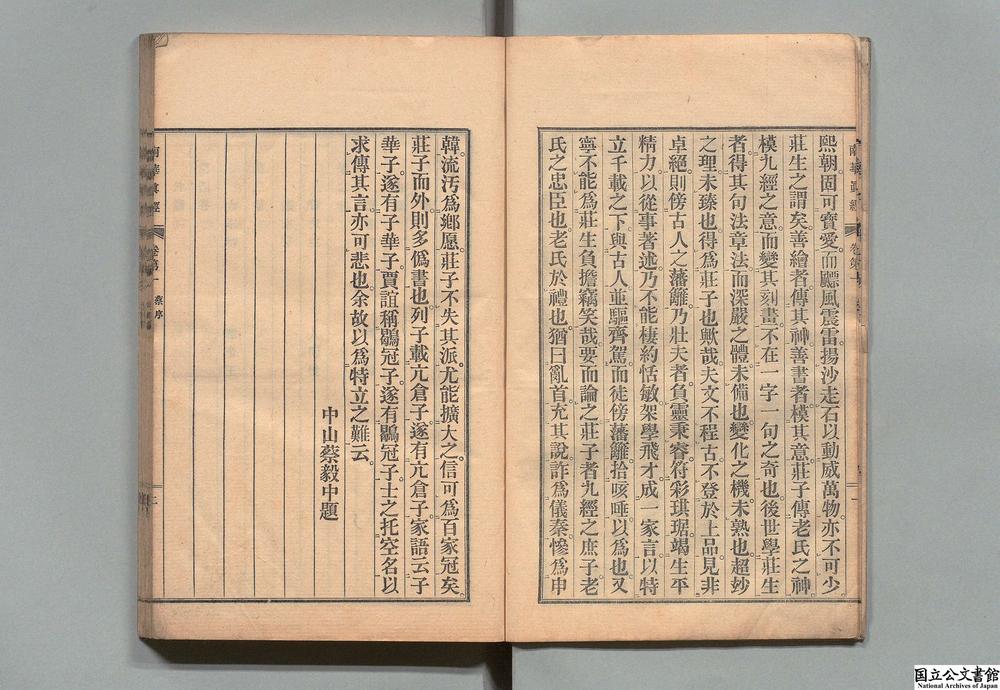 熙朝固可寶愛而飄風震雷揚沙走石以動威萬物亦不可少
莊生之謂矣善繪者傳其神善書者模其意莊子傳老氏之神
模九經之意而變其刻畫不在一字一句之奇也後世學莊生
者得其句法章法而深嚴之體未備也變化之機未熟也超玅
之理未臻也得爲莊子也歟哉夫文不程古不登於上品見非
卓絕則傍古人之藩籬乃壯夫者負靈秉睿符彩琪琚竭生平
精力以從事著述乃不能棲約恬敏架學飛才成一家言以特
立千載之下與古人並驅齊駕而徒傍藩籬拾咳唾以爲也又
寧不能爲莊生負擔竊笑哉要而論之莊子者九經之庶子老
氏之忠臣也老氏於禮也猶曰亂首充其說詐爲儀秦慘爲申
韓流污爲鄉愿莊子不失其派尤能擴大之信可爲百家冠矣
莊子而外則多僞書也列子載亢倉子遂有亢倉子家語云子
華子遂有子華子賈誼稱鶡冠子遂有鶡冠子士之托空名以
求傳其言亦可悲也余故以爲特立之難云
中山蔡毅中題
南華眞經
卷第一
蔡序
二
国立公文書館
National Archives of Japan